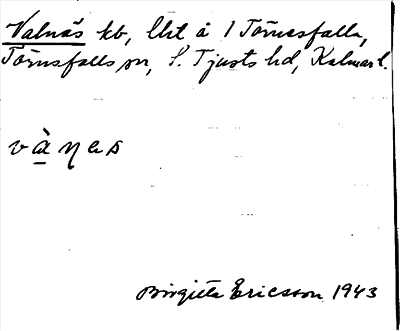 Valnäs kb, lht å 1 Törnesfalla,
Törnsfalls sn, S. Tjusts hd, Kalmar l.
vàṇes
Birgitta Ericsson 1943